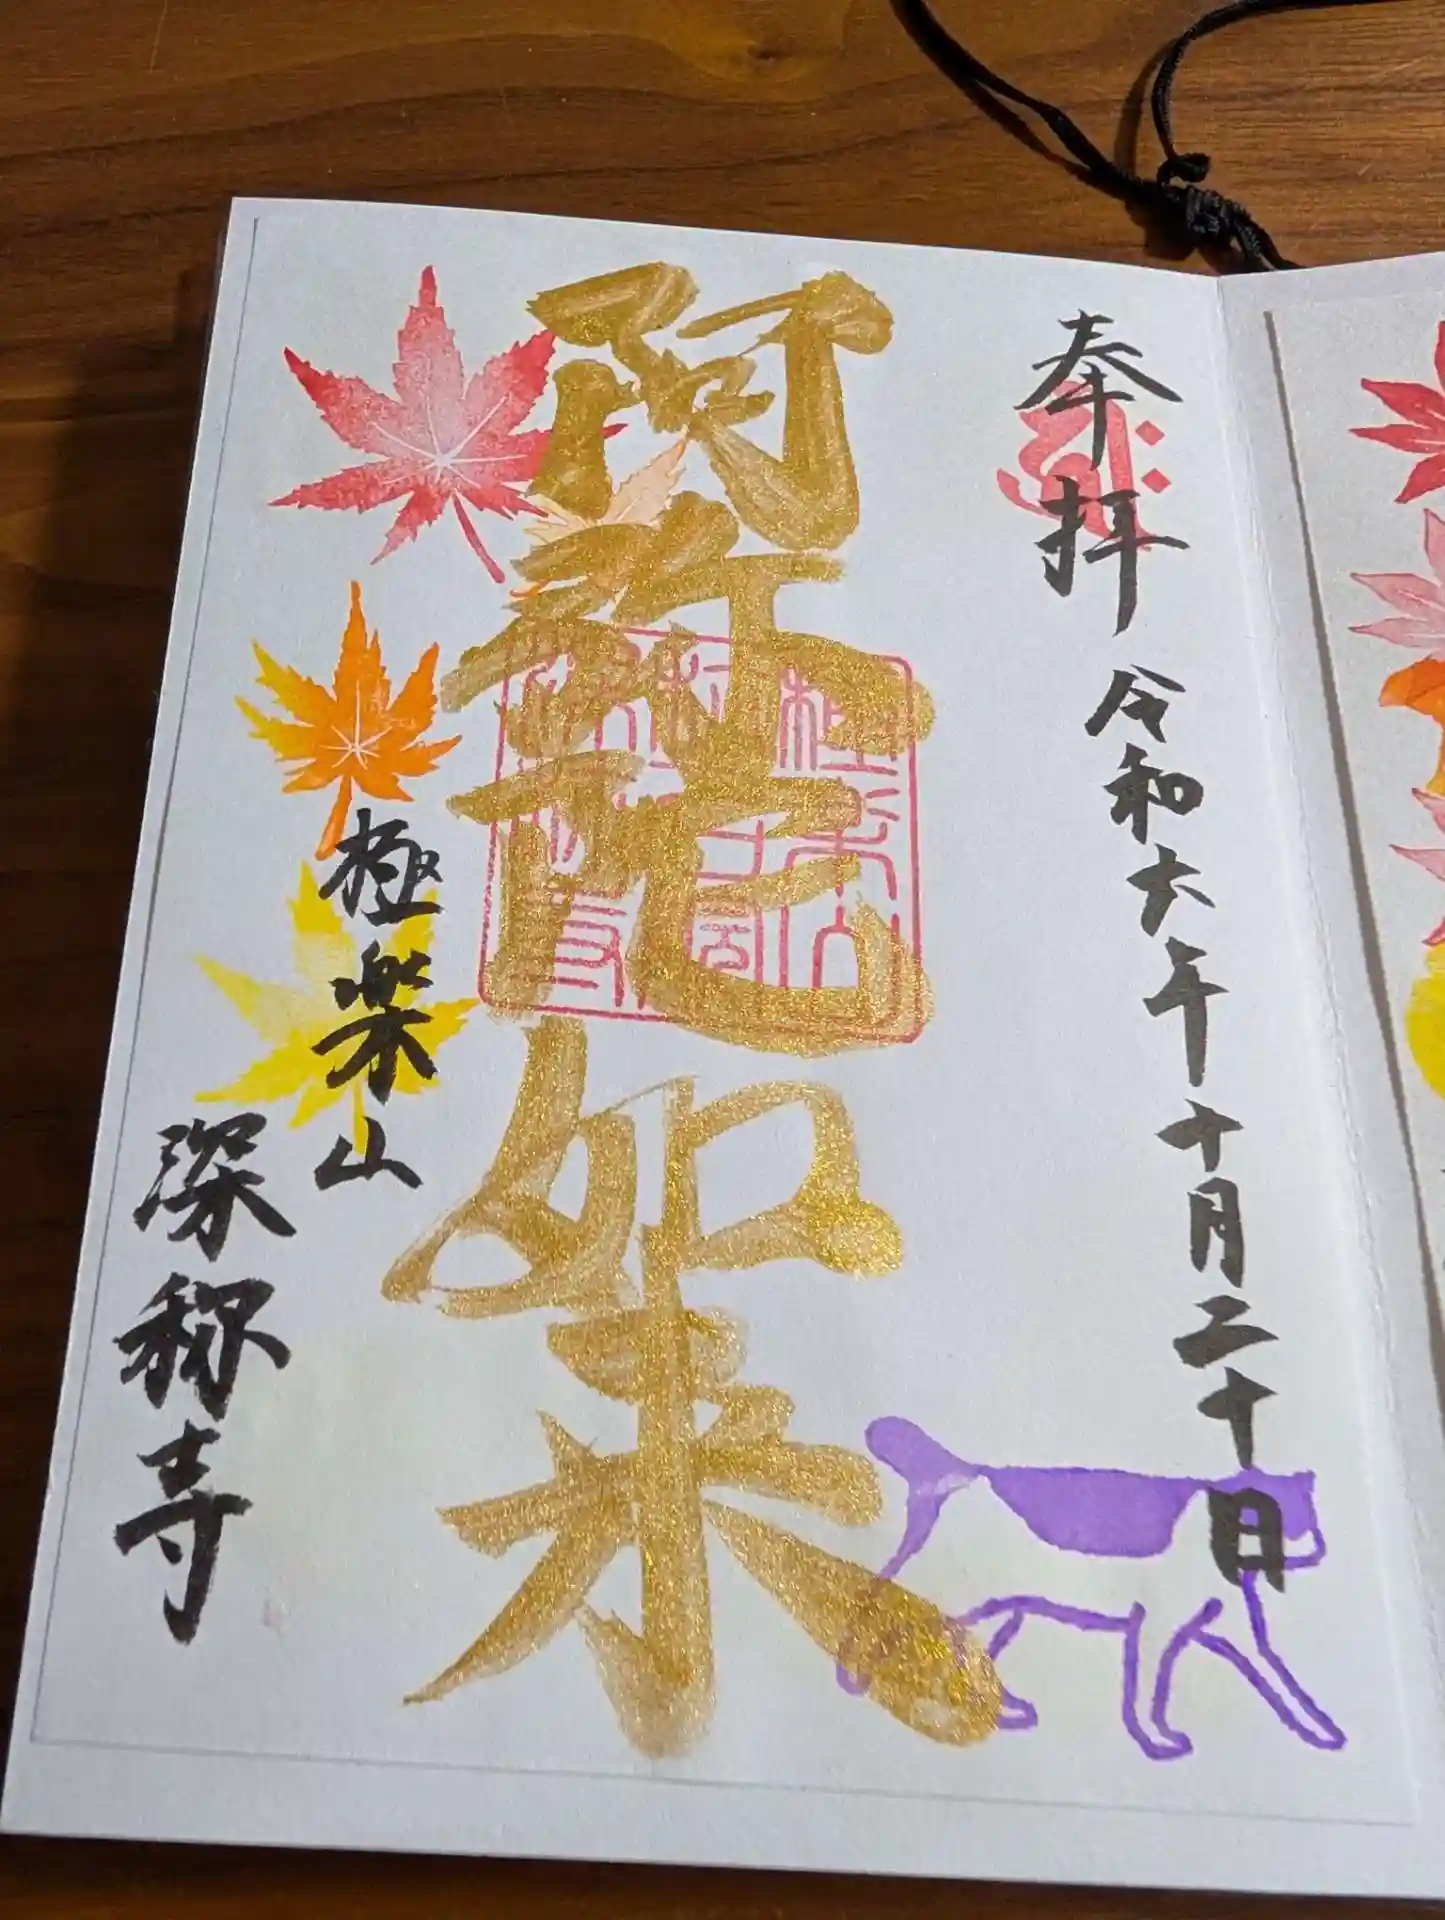 奉拝
令和六年十月二十日
阿弥陀如来
極楽山
深称寺